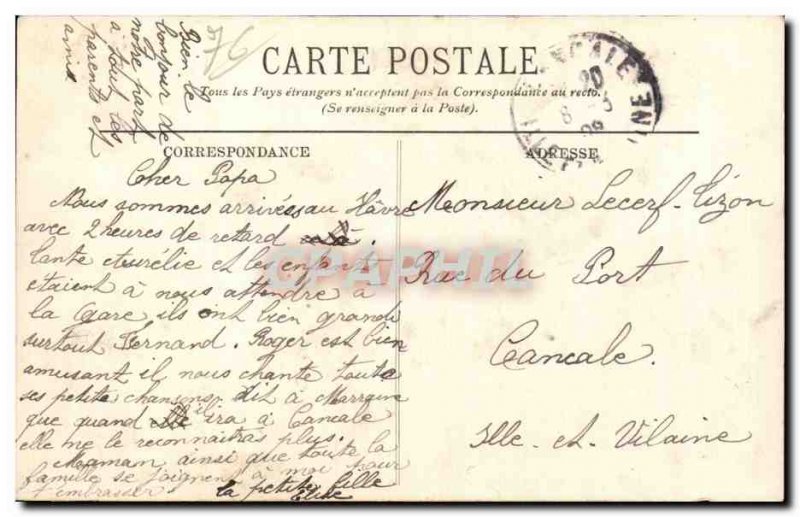 CARTE POSTALE
Tous les Pays étrangers n'acceptent pas la Correspondance au recto.
(Se renseigner à la Poste).
CORRESPONDANCE
ADRESSE
Bien le
bonjour de
notre part
à tout les
parents et
amis
Cher Papa
Nous sommes arrivés au Hâvre
avec 2 heures de retard
tante Aurélie et les enfants
étaient à nous attendre à
la Gare ils ont bien grandi
surtout Fernand. Roger est bien
amusant il nous chante toute
ses petite chansons dit à Marraine
que quand il ira à Cancale
elle me le reconnaîtras plus.
Maman ainsi que toute la
famille se joignent à moi pour
t'embrasser
la petite fille
Elise
Monsieur Lecerf-Lizon
Rue du Port
Cancale.
Ille-et-Vilaine
CANCALE
CPAPHIL